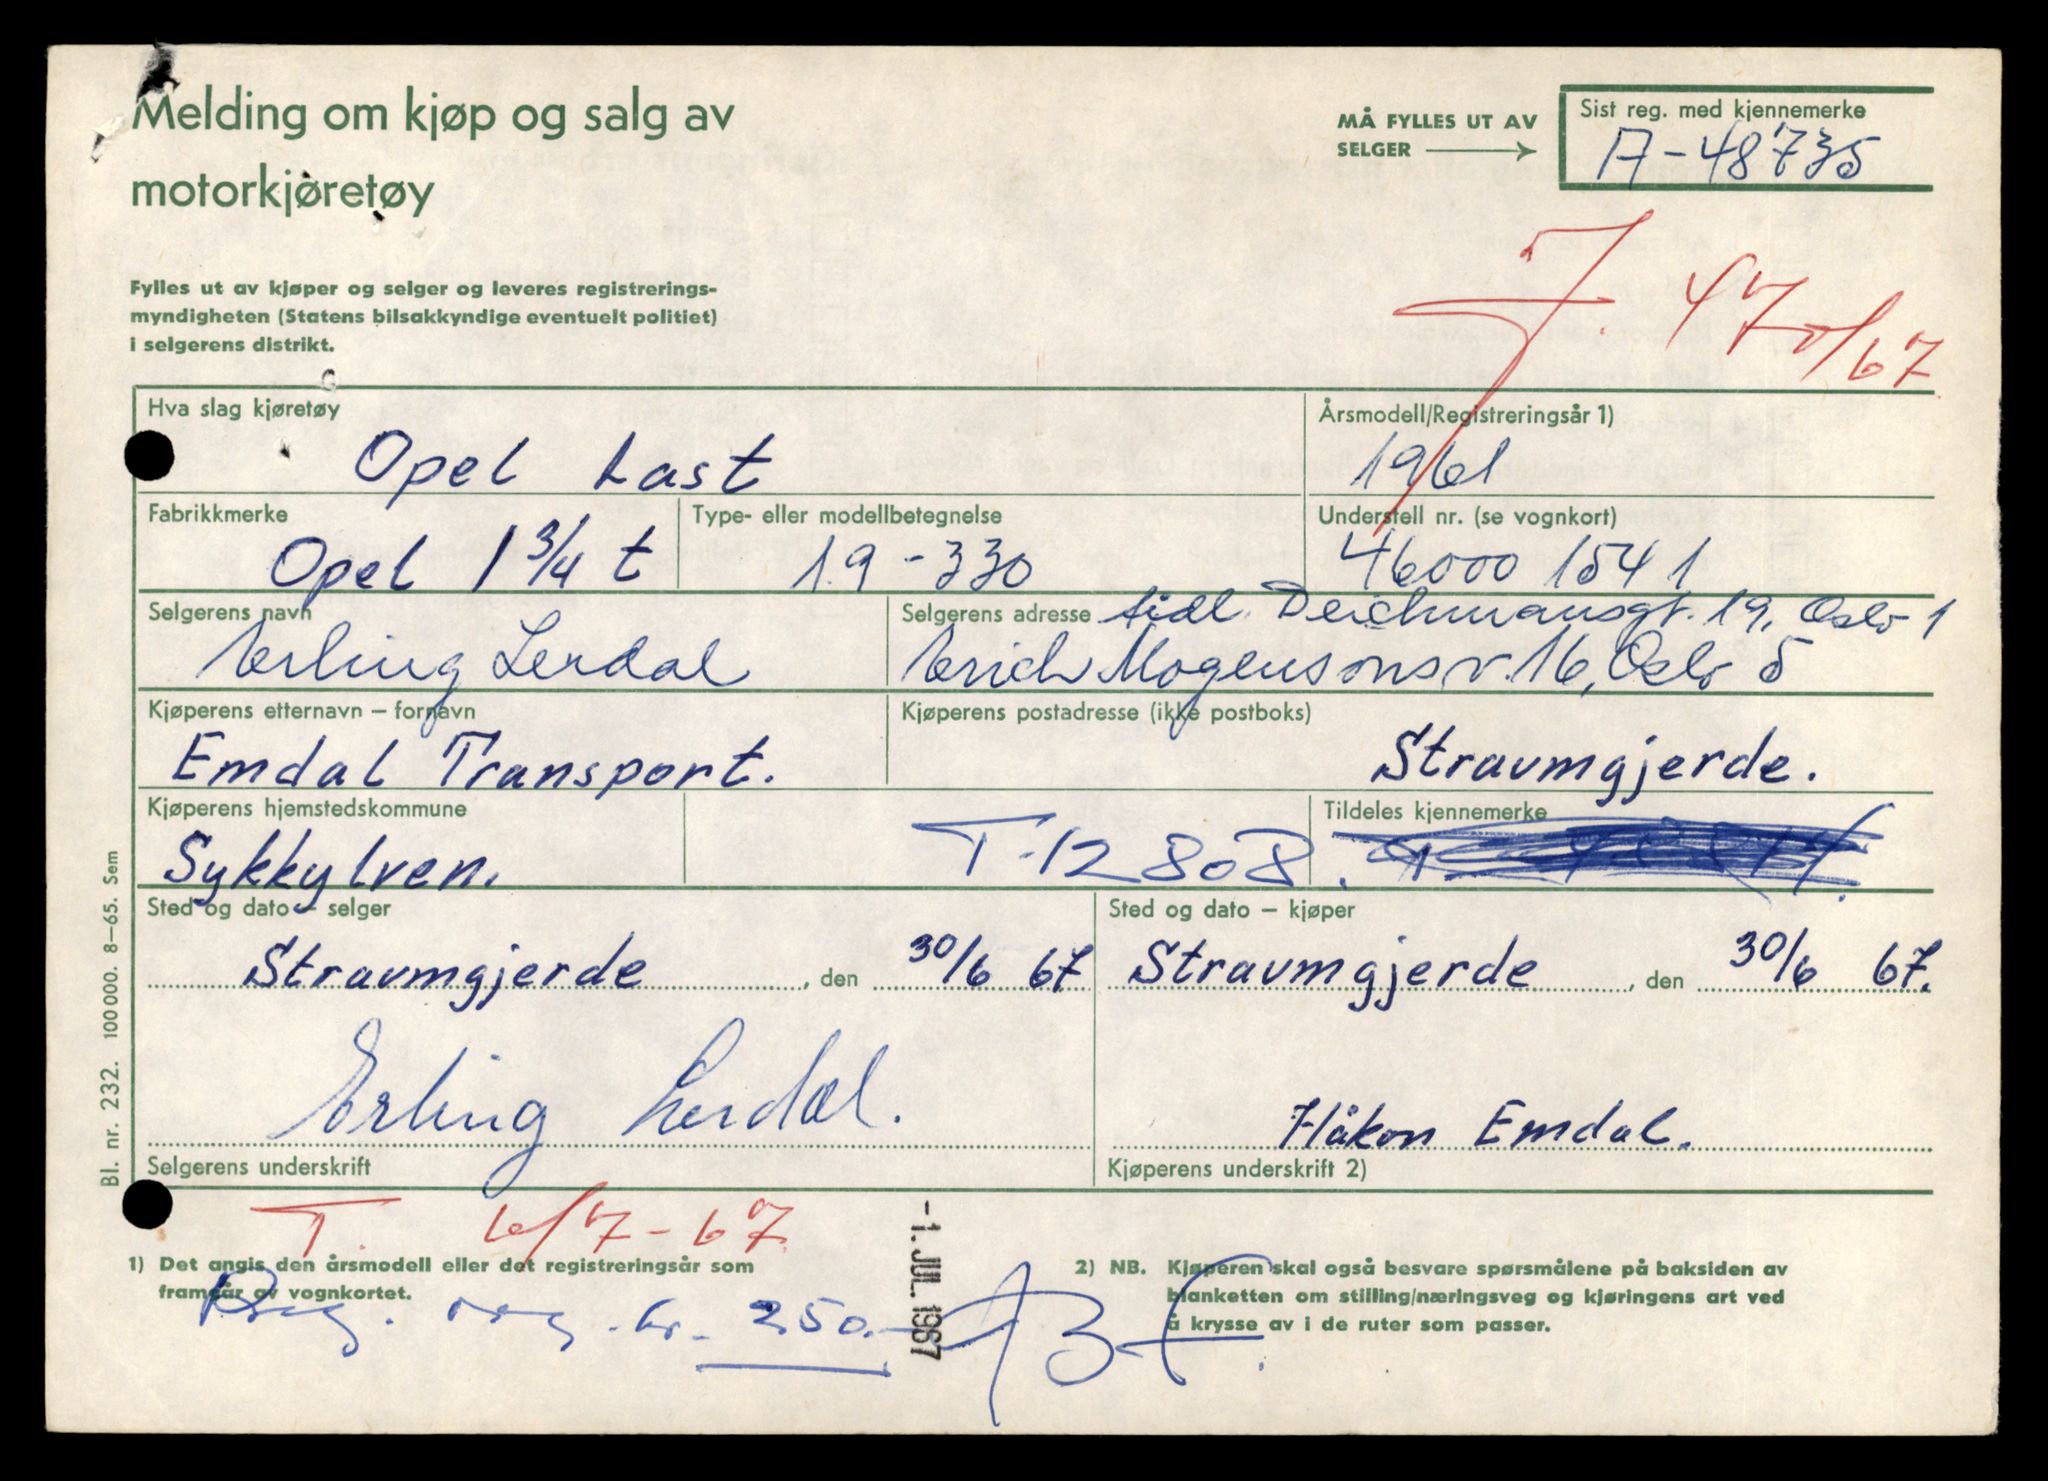 Melding om kjøp og salg av
motorkjøretøy
MÅ FYLLES UT AV
SELGER
Sist reg. med kjennemerke
A-48735
Fylles ut av kjøper og selger og leveres registrerings-
myndigheten (Statens bilsakkyndige eventuelt politiet)
i selgerens distrikt.
J. 4/7 67
Hva slag kjøretøy
Opel Last
Årsmodell/Registreringsår 1)
1961
Fabrikkmerke
Opel 1 3/4 t
Type- eller modellbetegnelse
1.9 - 330
Understell nr. (se vognkort)
46000 1541
Selgerens navn
Erling Lerdal
Selgerens adresse tidl. Deichmansgt. 19, Oslo 1
Erich Mogensønsv. 16, Oslo 5
Kjøperens etternavn – fornavn
Emdal Transport.
Kjøperens postadresse (ikke postboks)
Stravmgjerde.
Kjøperens hjemstedskommune
Sykkylven.
T-12808.
Tildeles kjennemerke
Sted og dato – selger
Stravmgjerde, den 30/6 67
Sted og dato – kjøper
Stravmgjerde, den 30/6 67.
Erling Lerdal.
Selgerens underskrift
Håkon Emdal.
Kjøperens underskrift 2)
Bl. nr. 232. 100000. 8–65. Sem
T. 6/7-67
-1. JUL. 1967
1) Det angis den årsmodell eller det registreringsår som
framgår av vognkortet.
kr. 250.-
2) NB. Kjøperen skal også besvare spørsmålene på baksiden av
blanketten om stilling/næringsveg og kjøringens art ved
å krysse av i de ruter som passer.